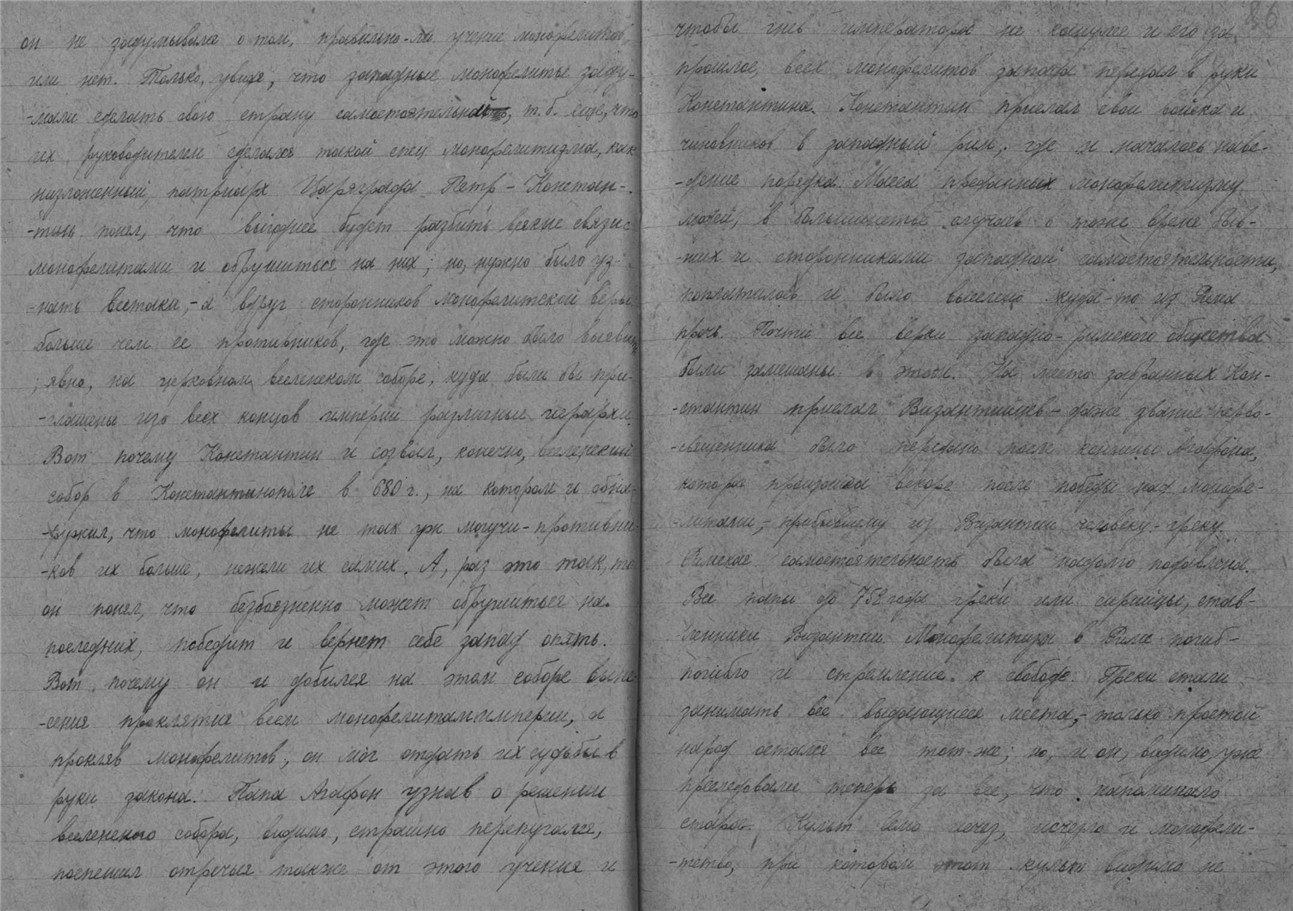 он не задумывался о том, правильно-ли учение монофелитов
или нет. Только, увидя, что западные монофелиты заду-
-мали сделать свою страну самостоятельной, т.б. еще, что
их руководителем сделался такой спец монофелитизма, как
низложенный патриарх Царяграда Петр - Констан-
-тин понял, что выгоднее будет разбить всякие связи с
монофелитами и обрушиться на них; но, нужно было уз-
-нать всетаки, - а вдруг сторонников монофелитской веры
больше чем ее противников, где это можно было выявить
; явно, на церковном вселенском соборе, куда были бы при-
-глашены изо всех концов империи различные иерархи.
Вот почему Константин и созвал, конечно, вселенский
собор в Константинополе в 680 г., на котором и обна-
-ружил, что монофелиты не так уж могучи - противни-
-ков их больше, нежели их самих. А, раз это так, то
он понял, что безбоязненно может обрушиться на
последних, победит и вернет себе запад опять.
Вот почему он и добился на этом соборе выне-
-сения проклятия всем монофелитам империи, а
прокляв монофелитов, он мог отдать их судьбы в
руки закона. Папа Агафон узнав о решении
вселенского собора, видимо, страшно перепугался,
поспешил отречься также от этого учения и
86
чтобы гнев императора не коснулся и его за
прошлое, всех монофелитов запада передал в руки
Константина. Константин прислал свои войска и
чиновников в западный Рим, где и началось наве-
-дение порядка. Масса преданных монофелитизму
людей, в большинстве случаев в тоже время быв-
-ших и сторонниками западной самостоятельности,
поплатилась и было выслано куда-то из Рима
прочь. Почти все верхи западно-римского общества
были замешаны в этом. На место забранных Кон-
-стантин прислал Византийцев - даже звание перво-
-священника было передано после кончины Агафона,
которая произошла вскоре после победы над монофе-
-литами, - прибывшему из Византии человеку - греку.
Римская самостоятельность была надолго подавлена.
Все папы до 752 года греки или сирийцы, став-
-ленники Византии. Монофелитизм в Риме погиб -
погибло и стремление к свободе. Греки стали
занимать все выдающиеся места, - только простой
народ остался все тот-же; но, и он, видимо, уже
преследовали теперь за все, что напоминало
старое. Культ исчез, исчезло и монофели-
-тство, при котором этот культ видимо не